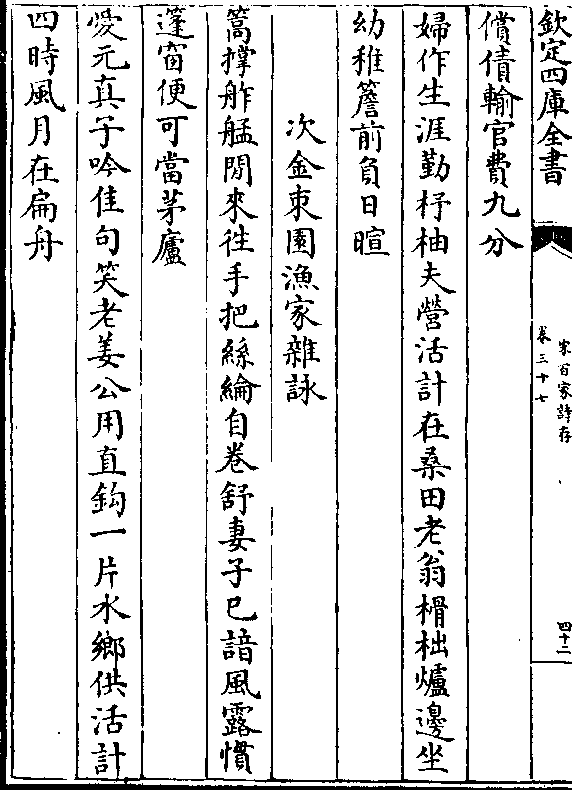 欽定四庫全書
宋百家詩存
卷三十七
四十二
償債輸官費九分
婦作生涯勤杼柚夫營活計在桑田老翁榾柮爐邊坐
幼稚簷前負日暄
次金東園漁家雜詠
篙撑舴艋閒來徃手把絲綸自卷舒妻子已諳風露慣
蓬窗便可當茅廬
愛元真子吟佳句笑老姜公用直鈎一片水鄉供活計
四時風月在扁舟